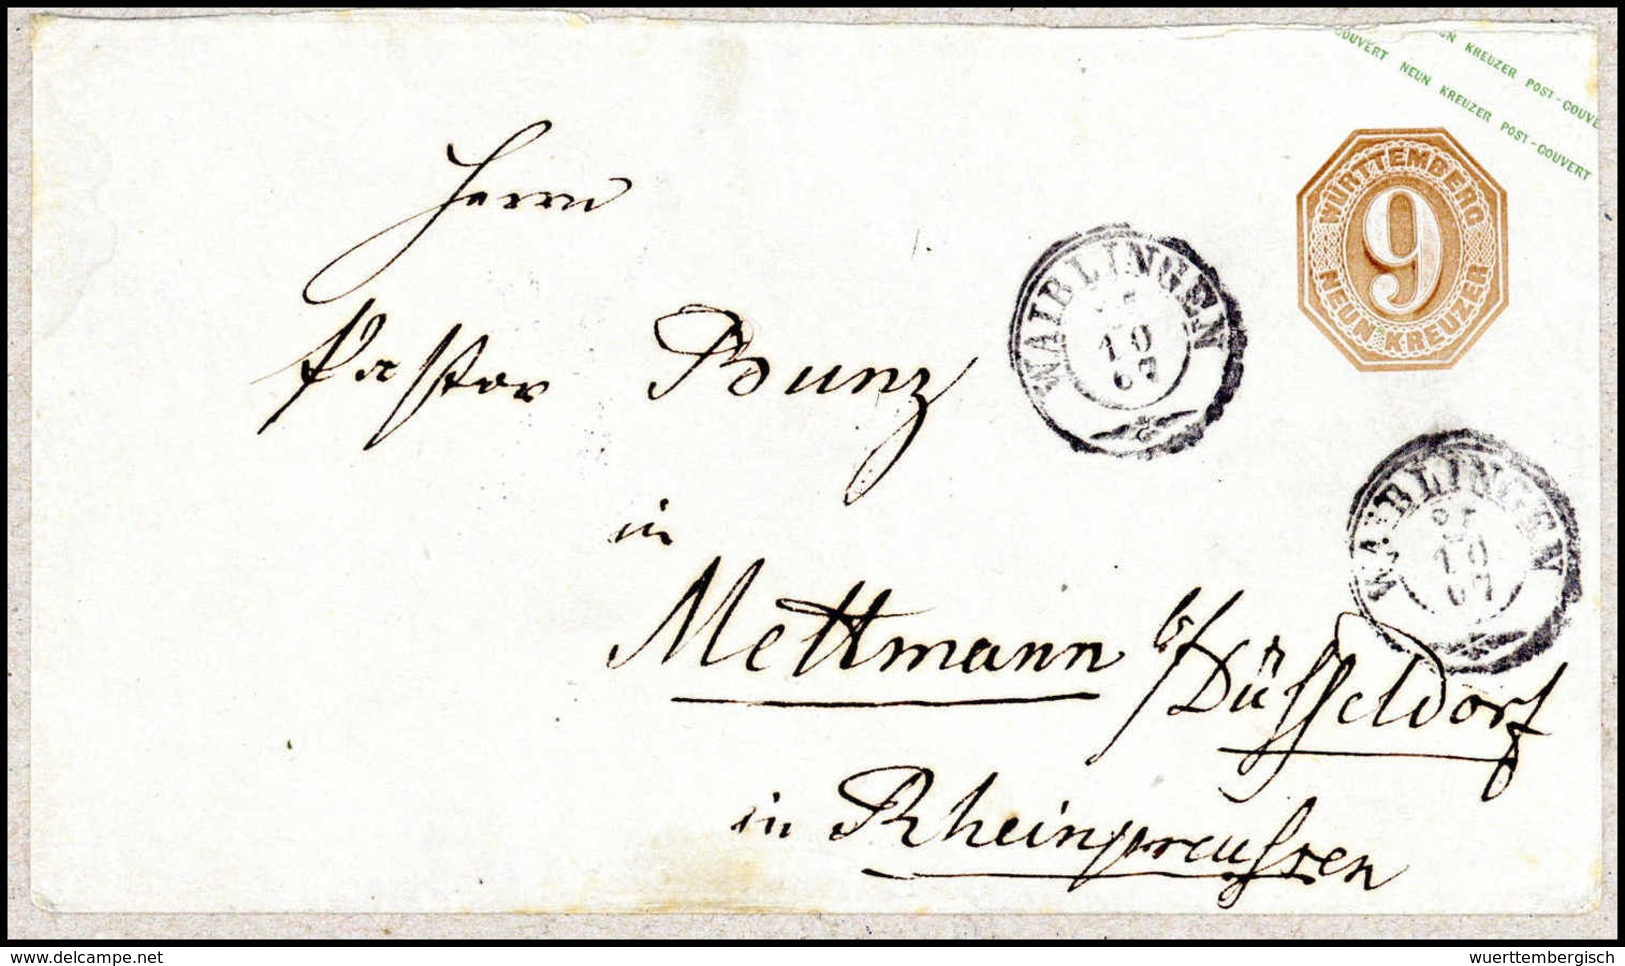 UN KREUZER POST-COUVE
COUVERT NEUN KREUZER POST-COUVERT
WÜRTTEMBERG
9
NEUN KREUZER
Herrn
WAIBLINGEN
10
67
Pastor Bunz
in
WAIBLINGEN
10
67
Mettmann b/Düsseldorf
in Rheinpreussen
www.delcampe.net
wuerttembergisch